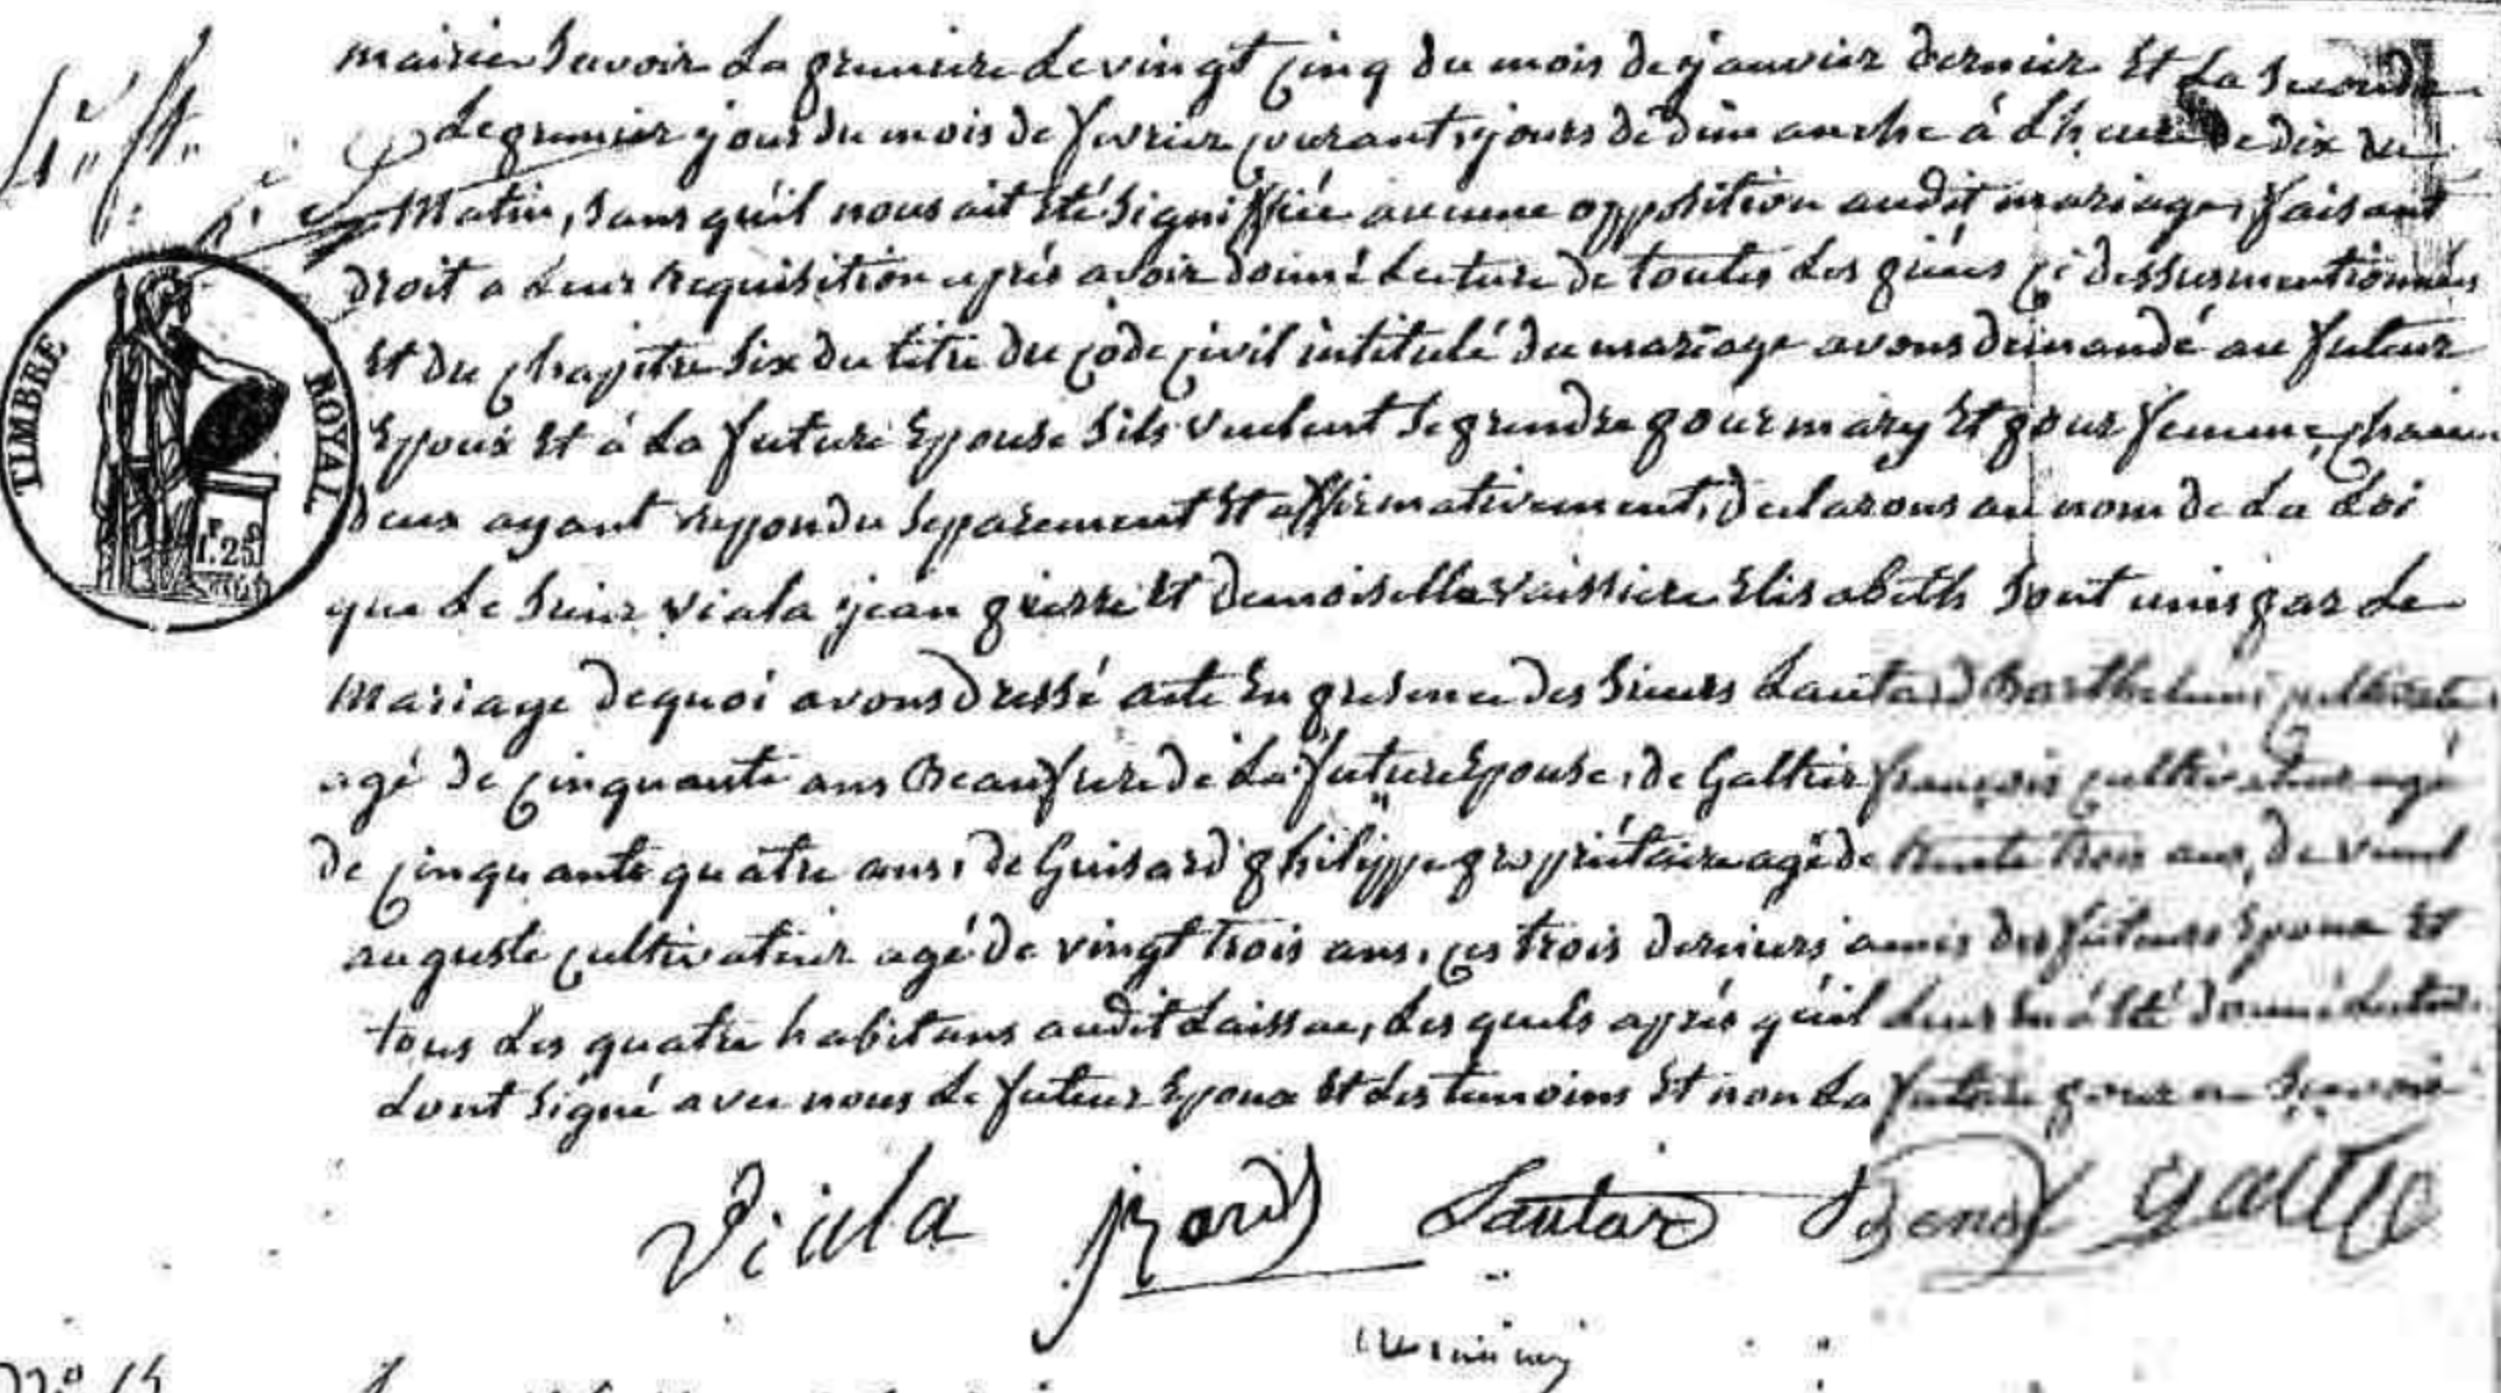 mairie Savoir La premiere Le vingt cinq du mois de janvier dernier Et La Seconde
Le premier jour du mois de fevrier courant, jours de dimanche à L'heure de dix du
Matin, Sans qu'il nous ait été Signiffiée aucune opposition audit mariage, faisant
droit a Leur requisition après avoir donné Lecture de toutes Les pièces ci dessus mentionnées
Et du chapitre Six du titre du code civil intitulé du mariage avons demandé au futeur
Epoux Et à La future Epouse S'ils veulent Se prendre pour mary Et pour femme, chacun
deux ayant reppondu Sepparement Et affirmativement, declarons au nom de La Loi
que Le Sieur Viala jean pierre Et demoiselle Vaissiere Elisabeth Sont unis par Le
Mariage de quoi avons dressé acte En presence des Sieurs Lautard Barthelemi cultivateur
agé de cinquante ans Beaufrere de La future Epouse, de Galtier françois cultivateur agé
de cinquante quatre ans, de Guisard philippe propriétaire agé de trente trois ans, de
auguste cultivateur agé de vingt trois ans, ces trois derniers amis des futeurs Epoux Et
tous Les quatre habitans audit Laissac, Les quels après qu'il Leur En á été donné Lecture
L'ont Signé avec nous Le futeur Epoux Et Les temoins Et non La future pour ne Scavoir
TIMBRE ROYAL
1.25
Viala Lautard Galtie